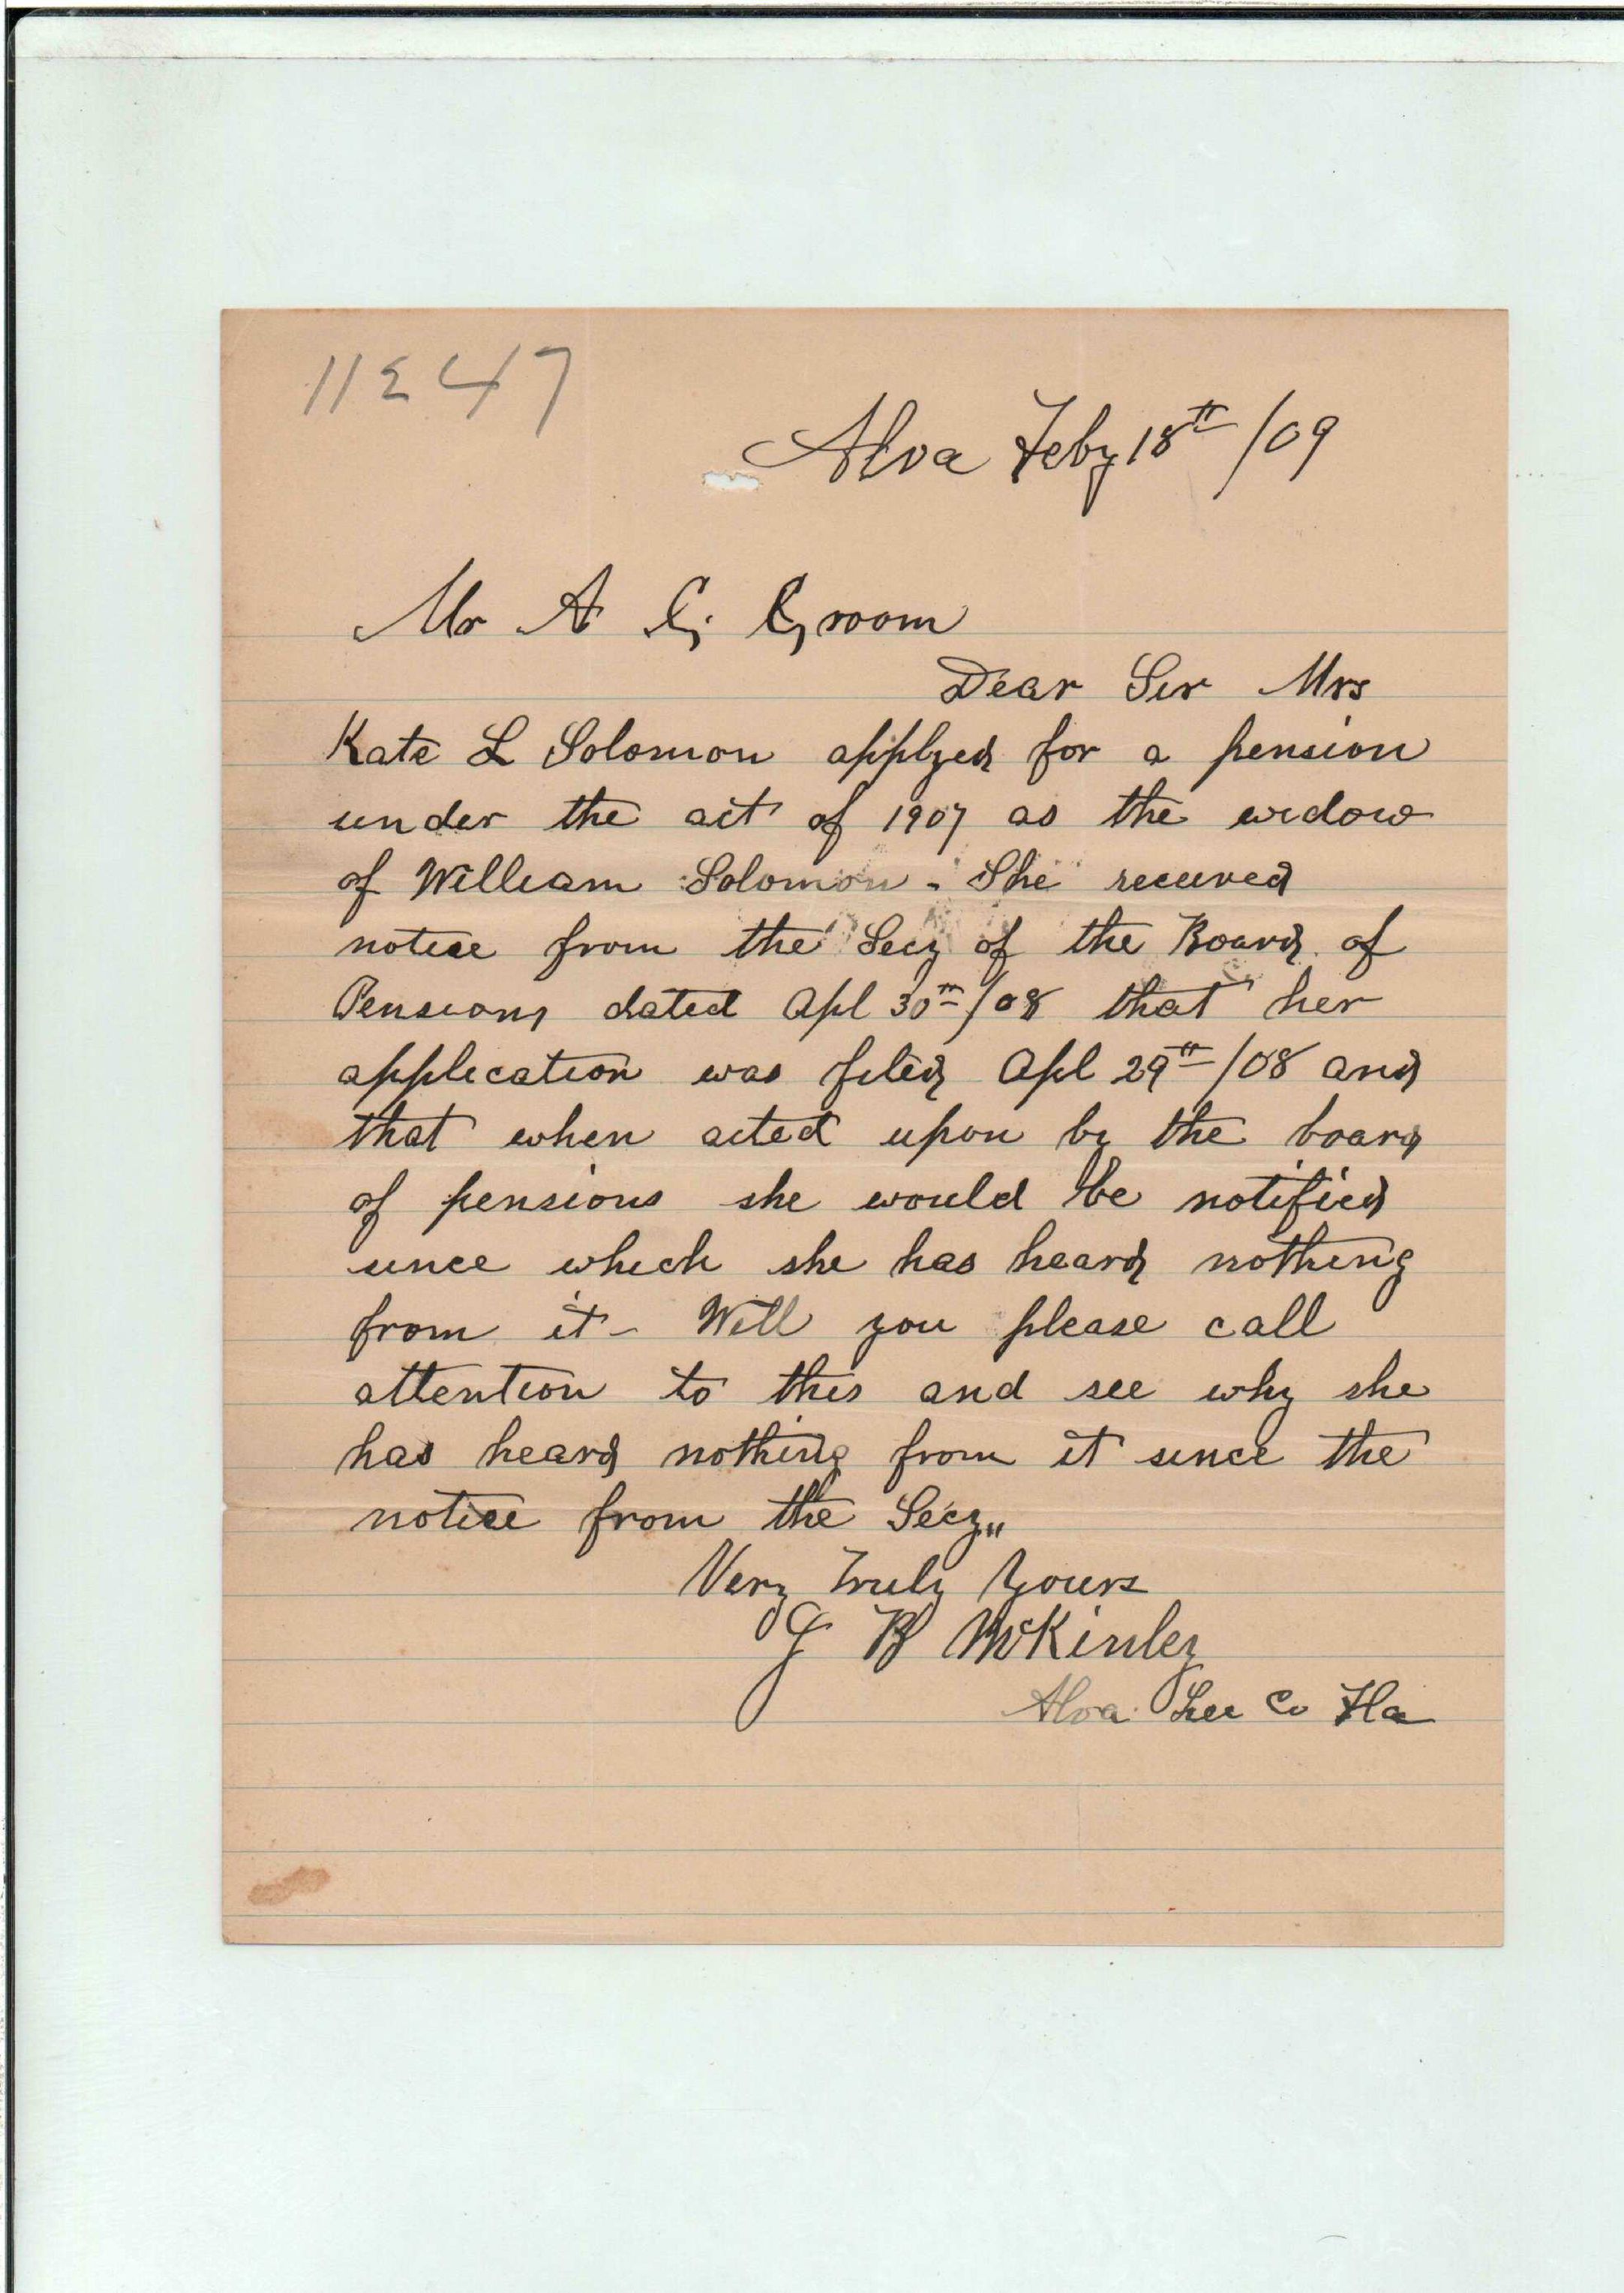 11247
Alva Feby 18th /09
Mr A G Groom
Dear Sir Mrs
Kate L Solomon applyed for a pension
under the act of 1907 as the widow
of William Solomon - She received
notice from the Secy of the Board of
Pensions dated Apl 30th /08 that her
application was filed Apl 29th /08 and
that when acted upon by the board
of pensions she would be notified
since which she has heard nothing
from it - Will you please call
attention to this and see why she
has heard nothing from it since the
notice from the Secy"
Very Truly Yours
J B McKinley
Alva Lee Co Fla